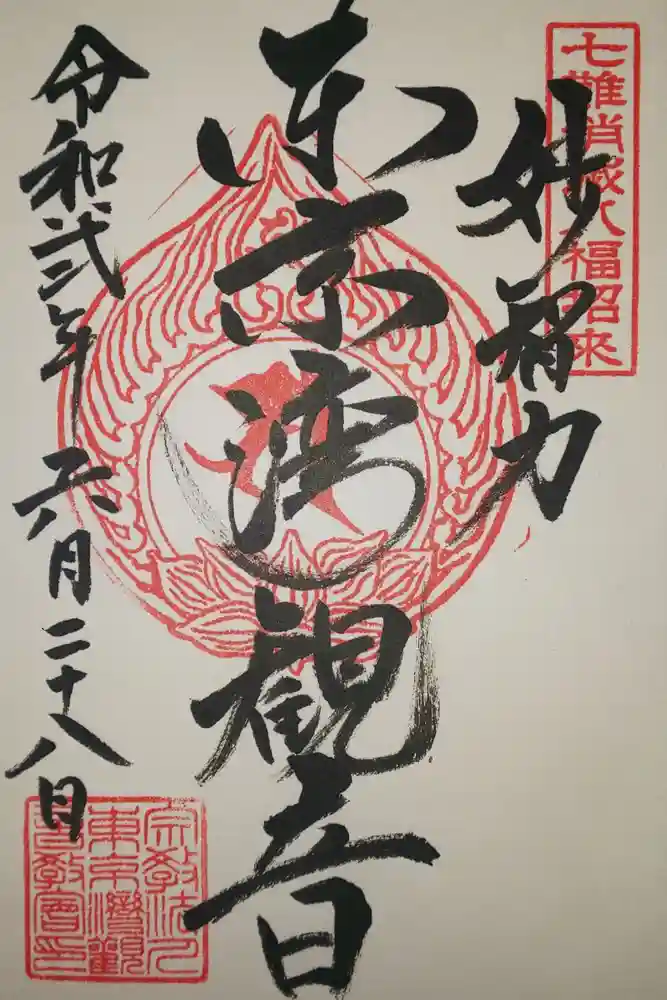 七難消滅八福招来
妙智力
东京湾観音
令和弐年六月二十八日
宗教法人
東京灣觀
音教會印